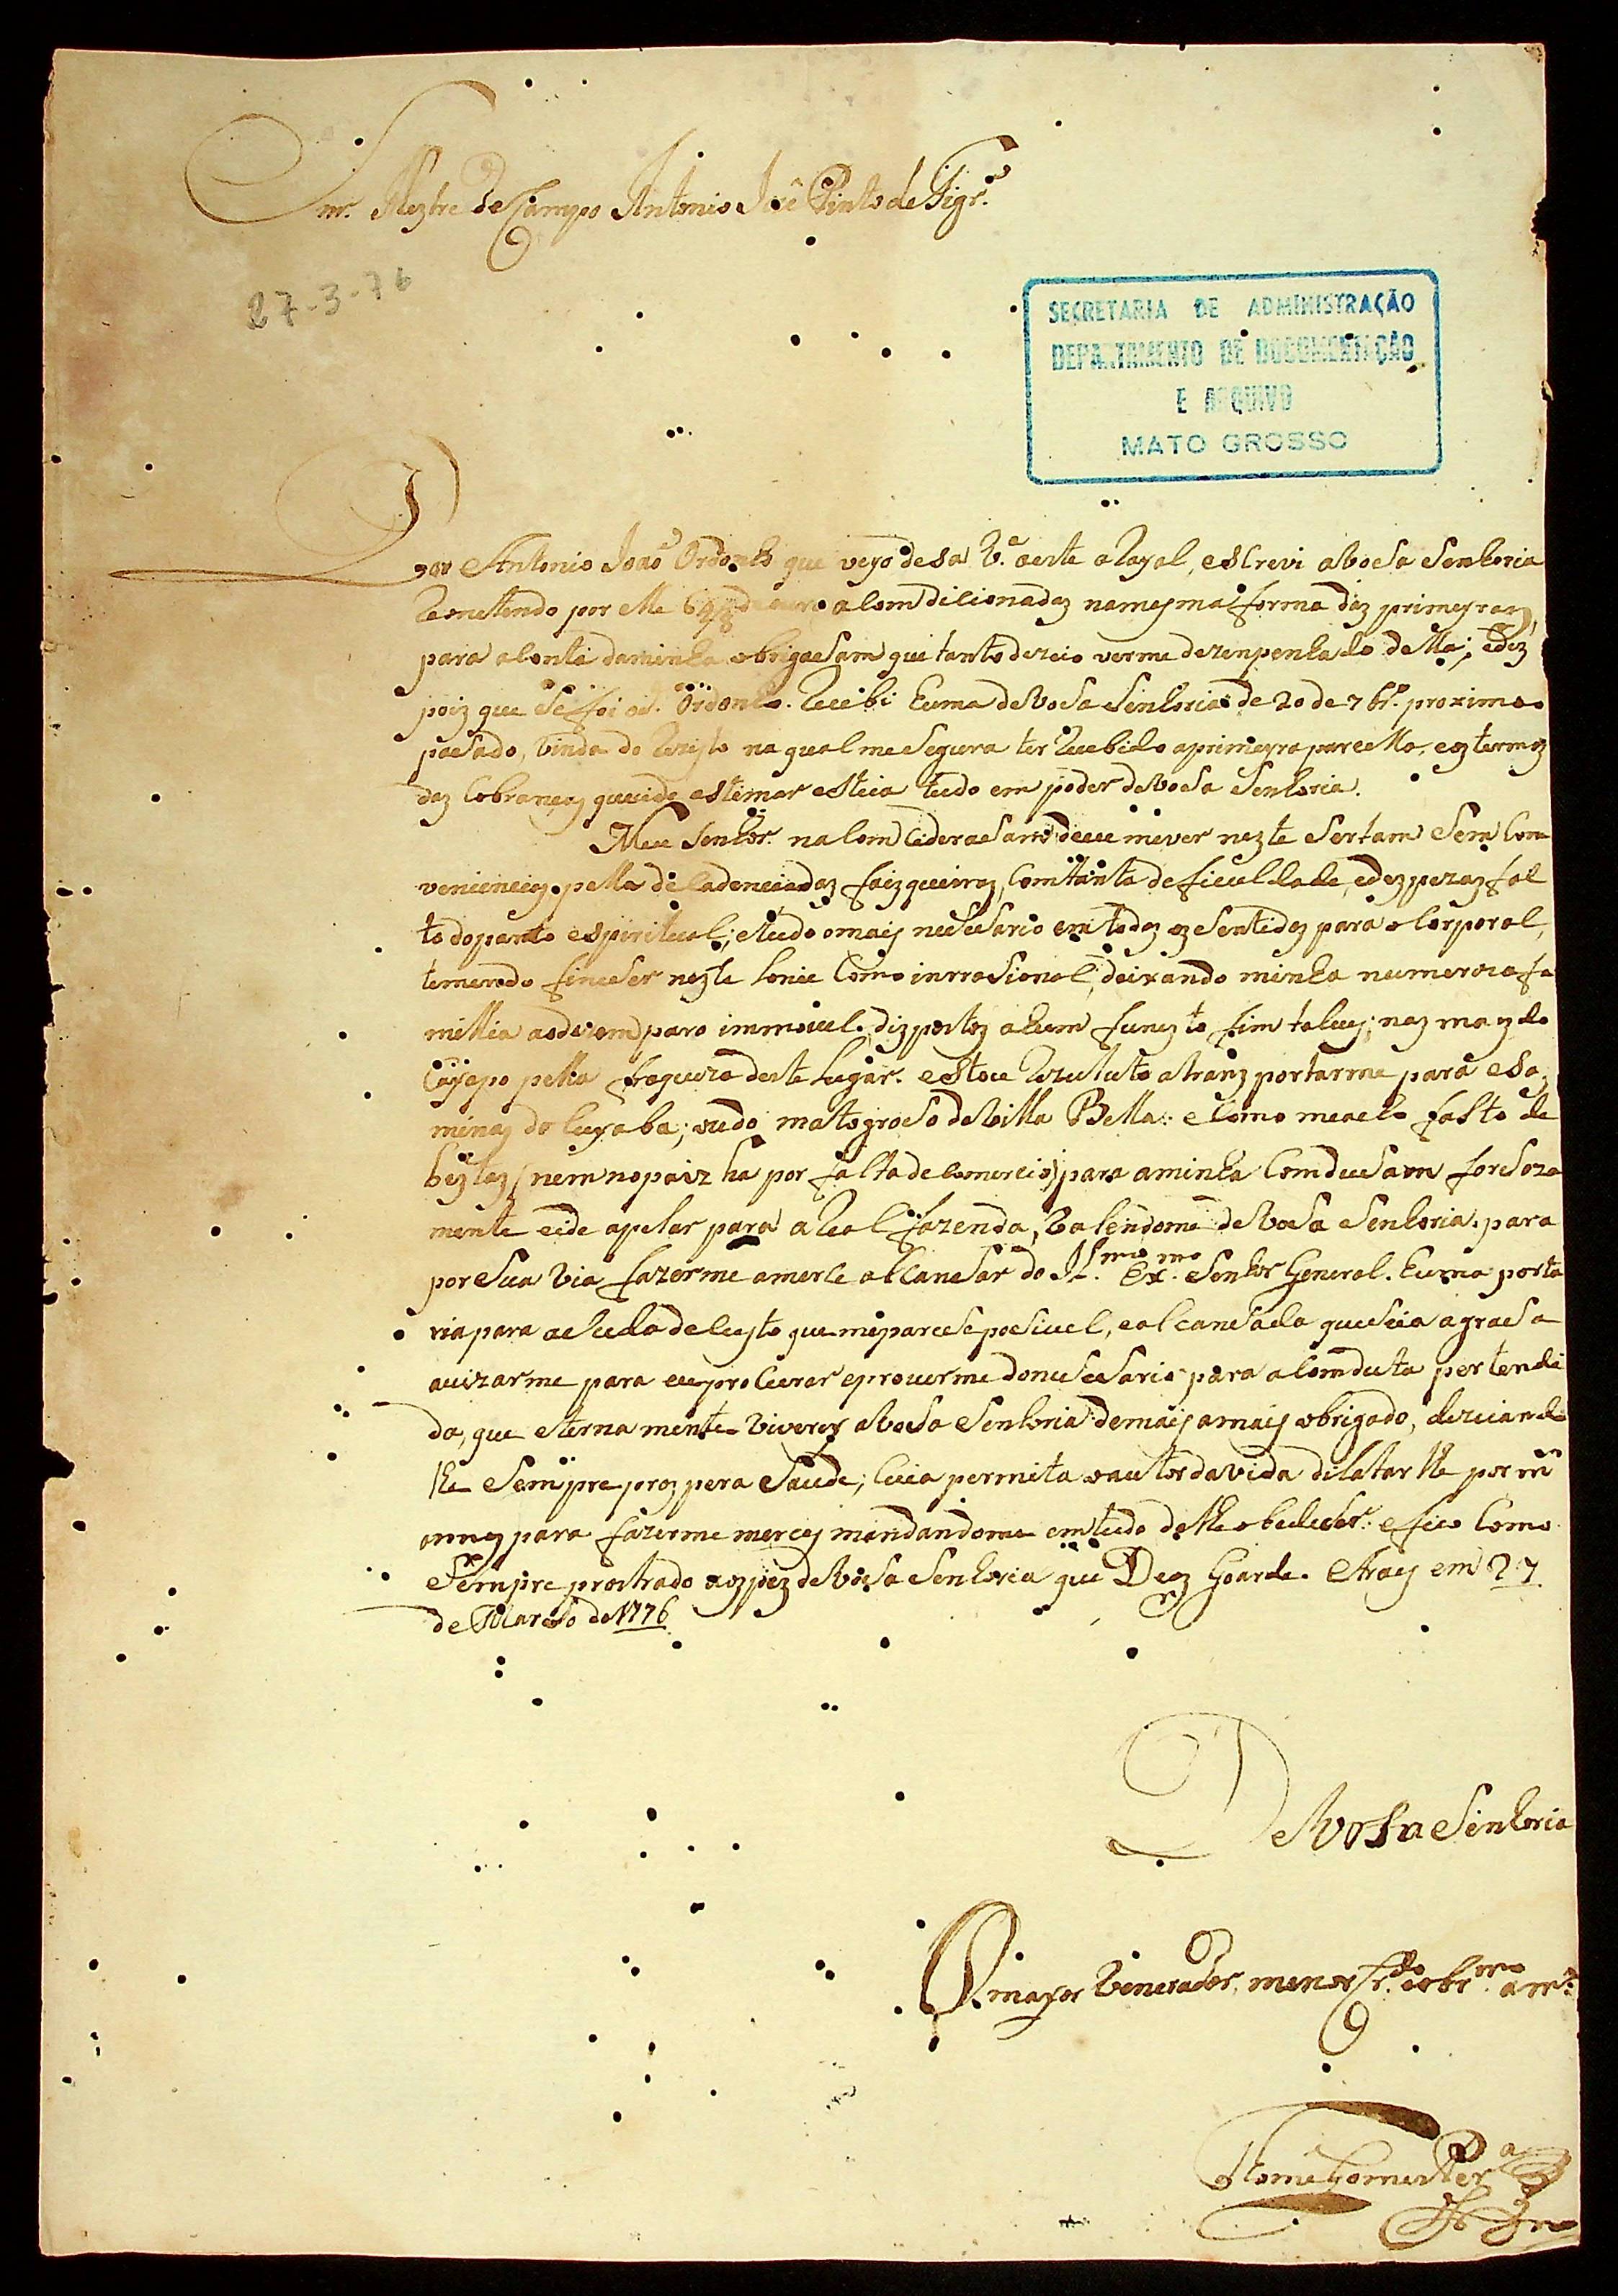 Snr. Meztre de Campo Antonio Joze Pinto de Figr.º
27-3-76
SECRETARIA DE ADMINISTRAÇÃO
DEPARTAMENTO DE DOCUMENTAÇÃO
E ARQUIVO
MATO GROSSO
Por Antonio Joaõ Ordonho que veyo desa V.ª aeste aRayal, escrevi aVoesa Senhoria
Remetendo por elle 64/8 de ouro aComdicionadaz namezma forma daz primeyraz,
para aConta daminha obrigaesam que tanto dezeio verme dezenpenhado della; edez
poiz que Se foi od. Ordonho. Recebi huma deVoesa Senhoria de 20 de 7br.º proximo
paesado, Vinda do Rezisto na qual meSegura ter Recebido aprimeyra parcella, eoz termoz
daz Cobransaz queeide estimar esteia tudo em poder deVoesa Senhoria.
Meu Senhor. na Comcideraesam deeu mever nezte Sertam Sem Com
venienciaz pella decadencia daz faizqueiraz, Comtanta deficuldade, edezpezaz fal
to dopasto espiritual; etudo omaiz nesesario emtodoz oz Sentidoz para oCorporal,
temendo fineser nezte Como inrrasional, deixando minha numeroza fa
millia aodezemparo immovel, dizpostoz ahum funezto fim talvez; naz maoz do
Cayapo pella fraqueza deste Lugar. estou Rezuluto atranzportarme para esaz
minaz do Cuyaba; oudo matogroeso deVilla Bella: eComo meacho falto de
beztaz (nem nopaiz ha por falta deComercio) para aminha Comduesam forsoza
mente eide apelar para aReal fazenda, Valendome deVoesa Senhoria, para
por Sua Via fazerme amerce alCansar do Il.mo Ex.mo Senhor General. huma porta
ria para de Custo que meparese poesivel, ealcansada queseia agraesa
avizarme para eu proCurar eproverme donesesario para aComduta pertendi
da, que eternamente Viverey aVoesa Senhoria demaiz amaiz obrigado, dezeiando
lhe Sempre prozpera Saude; Cuia permita oautor davida dilatarlhe por m.s
annoz para fazerme mercez mandandome emtudo delhe obedeser: efico Como
Sempre prostrado aozpez deVoesa Senhoria que Deoz Goarde. Araez em 27
de Marso de 1776
DeVoSa Senhoria
O mayor Venerador, menor Cr.do eobr.mo am.º
Thome Gomes Per.ª